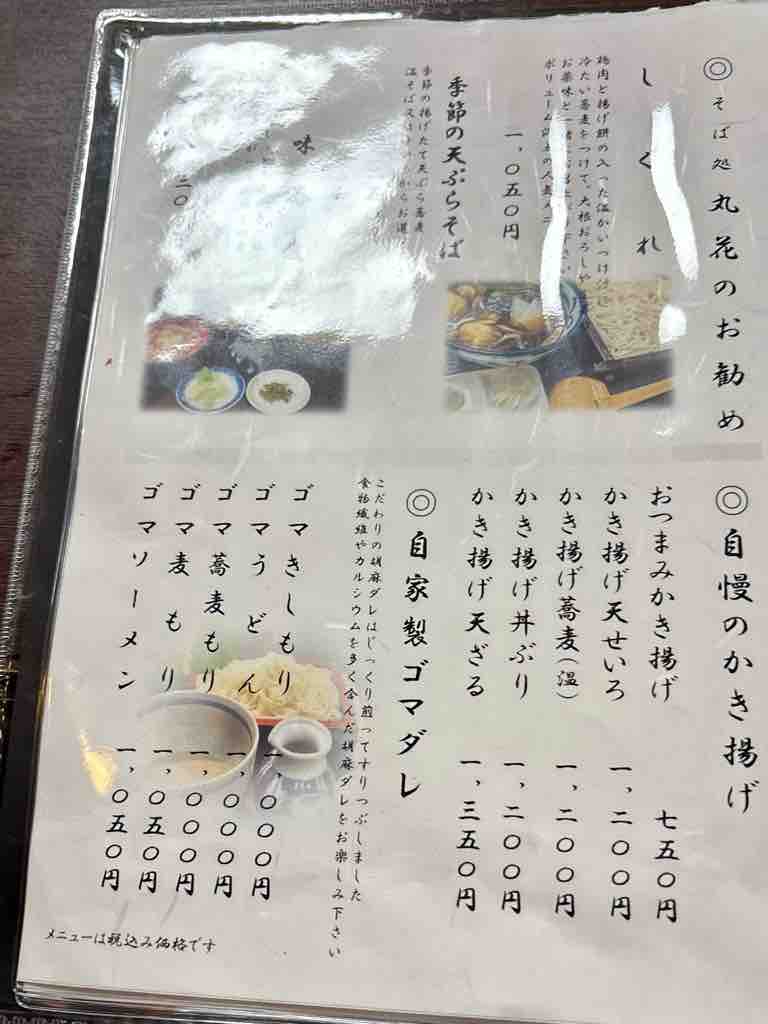 ◎そば処 丸花のお勧め
しぐれ
肉と揚げ餅の入った温かいつけ汁に
冷たい蕎麦をつけて、大根おろしや
お薬味と一緒に
ボリューム
一,〇五〇円
季節の天ぷらそば
季節の揚げたて天ぷら蕎麦
温そば からお選
味
◎自慢のかき揚げ
おつまみかき揚げ 七五〇円
かき揚げ天せいろ 一,二〇〇円
かき揚げ蕎麦(温) 一,二〇〇円
かき揚げ丼ぶり 一,二〇〇円
かき揚げ天ざる 一,三五〇円
◎自家製ゴマダレ
こだわりの胡麻ダレはじっくり煎ってすりつぶしました
食物繊維やカルシウムを多く含んだ胡麻ダレをお楽しみ下さい
ゴマきしもり 一,〇〇〇円
ゴマうどん 一,〇〇〇円
ゴマ蕎麦もり 一,〇〇〇円
ゴマ麦もり 一,〇五〇円
ゴマソーメン 一,〇五〇円
メニューは税込み価格です